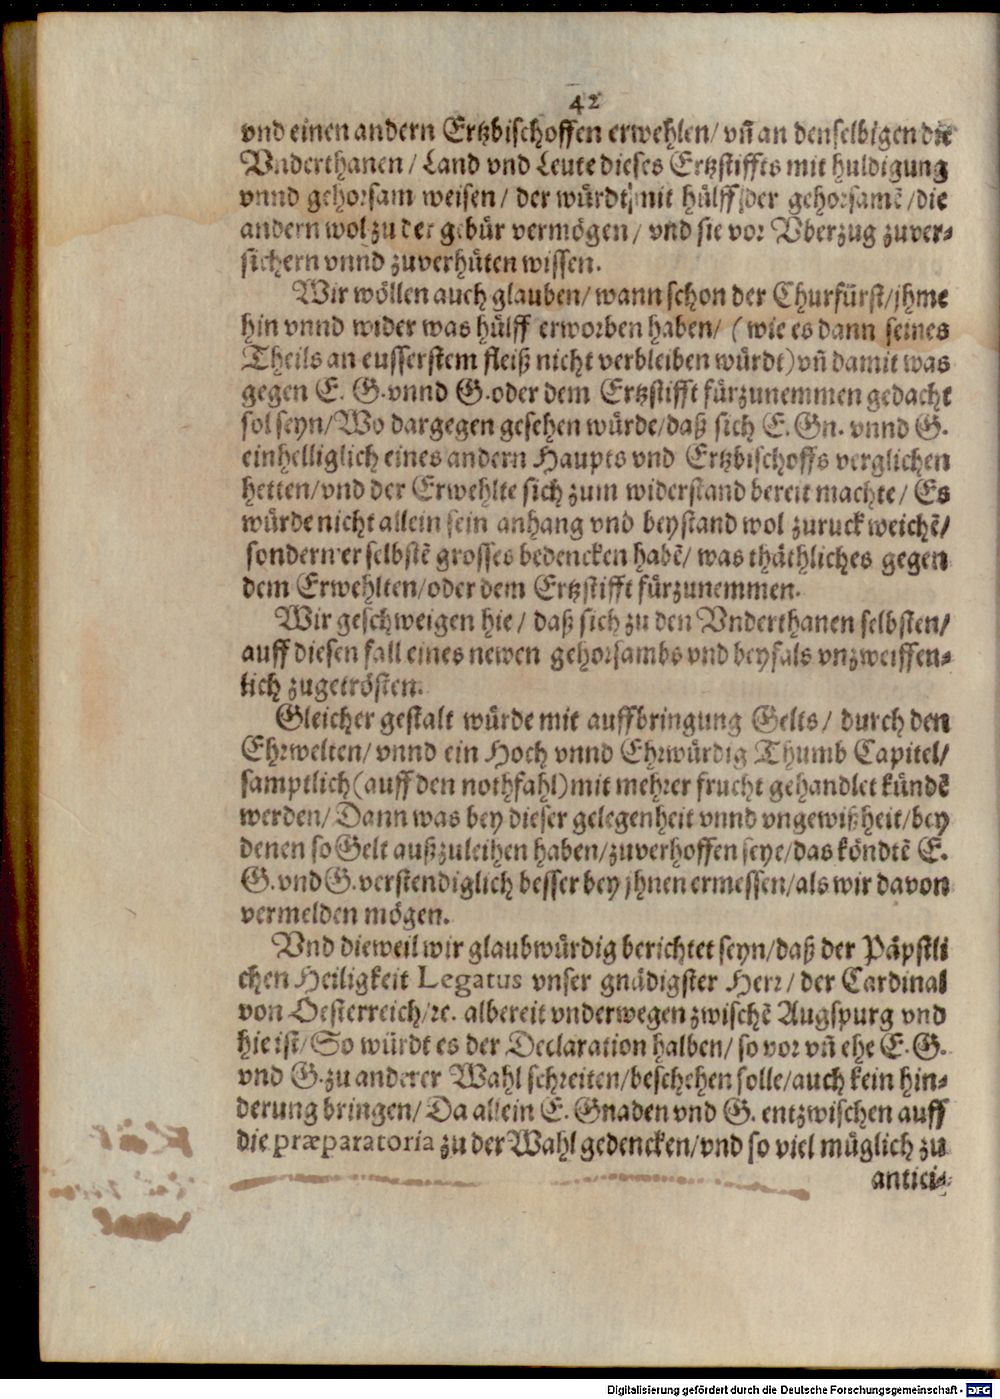 42
vnd einen andern Ertzbischoffen erwehlen/ vñ an denselbigen die
Vnderthanen / Land vnd Leute dieses Ertzstiffts mit huldigung
vnnd gehorsam weisen / der würdt mit hülff der gehorsamẽ /die
andern wol zu der gebür vermögen / vnd sie vor Vberzug zuver-
sichern vnnd zuverhüten wissen.
Wir wöllen auch glauben/ wann schon der Churfürst/jhme
hin vnnd wider was hülff erworben haben/ ( wie es dann seines
Theils an eusserstem fleiß nicht verbleiben würdt) vñ damit was
gegen E. G. vnnd G. oder dem Ertzstifft fürzunemmen gedacht
sol seyn/ Wo dargegen gesehen würde/daß sich E. Gn. vnnd G.
einhelliglich eines andern Haupts vnd Ertzbischoffs verglichen
hetten/vnd der Erwehlte sich zum widerstand bereit machte/ Es
würde nicht allein sein anhang vnd beystand wol zuruck weichẽ/
sondern er selbstẽ grosses bedencken habẽ/ was thäthliches gegen
dem Erwehlten/oder dem Ertzstifft fürzunemmen.
Wir geschweigen hie / daß sich zu den Vnderthanen selbsten/
auff diesen fall eines newen gehorsambs vnd beyfals vnzweiffen-
lich zugetrösten.
Gleicher gestalt würde mit auffbringung Gelts / durch den
Ehrwelten/ vnnd ein Hoch vnnd Ehrwürdig Thumb Capitel/
samptlich (auff den nothfahl) mit mehrer frucht gehandlet kündẽ
werden/ Dann was bey dieser gelegenheit vnnd vngewißheit/bey
denen so Gelt außzuleihen haben/zuverhoffen seye/das köndtẽ E.
G. vnd G. verstendiglich besser bey jhnen ermessen/als wir davon
vermelden mögen.
Vnd dieweil wir glaubwürdig berichtet seyn/daß der Päpstli
chen Heiligkeit Legatus vnser gnädigster Herr/ der Cardinal
von Oesterreich/ꝛc. albereit vnderwegen zwischẽ Augspurg vnd
hie ist/ So würdt es der Declaration halben/ so vor vñ ehe E. G.
vnd G. zu anderer Wahl schreiten/beschehen solle/auch kein hin-
derung bringen/ Da allein E. Gnaden vnd G. entzwischen auff
die præparatoria zu der Wahl gedencken/vnd so viel müglich zu
antici-
Digitalisierung gefördert durch die Deutsche Forschungsgemeinschaft - DFG